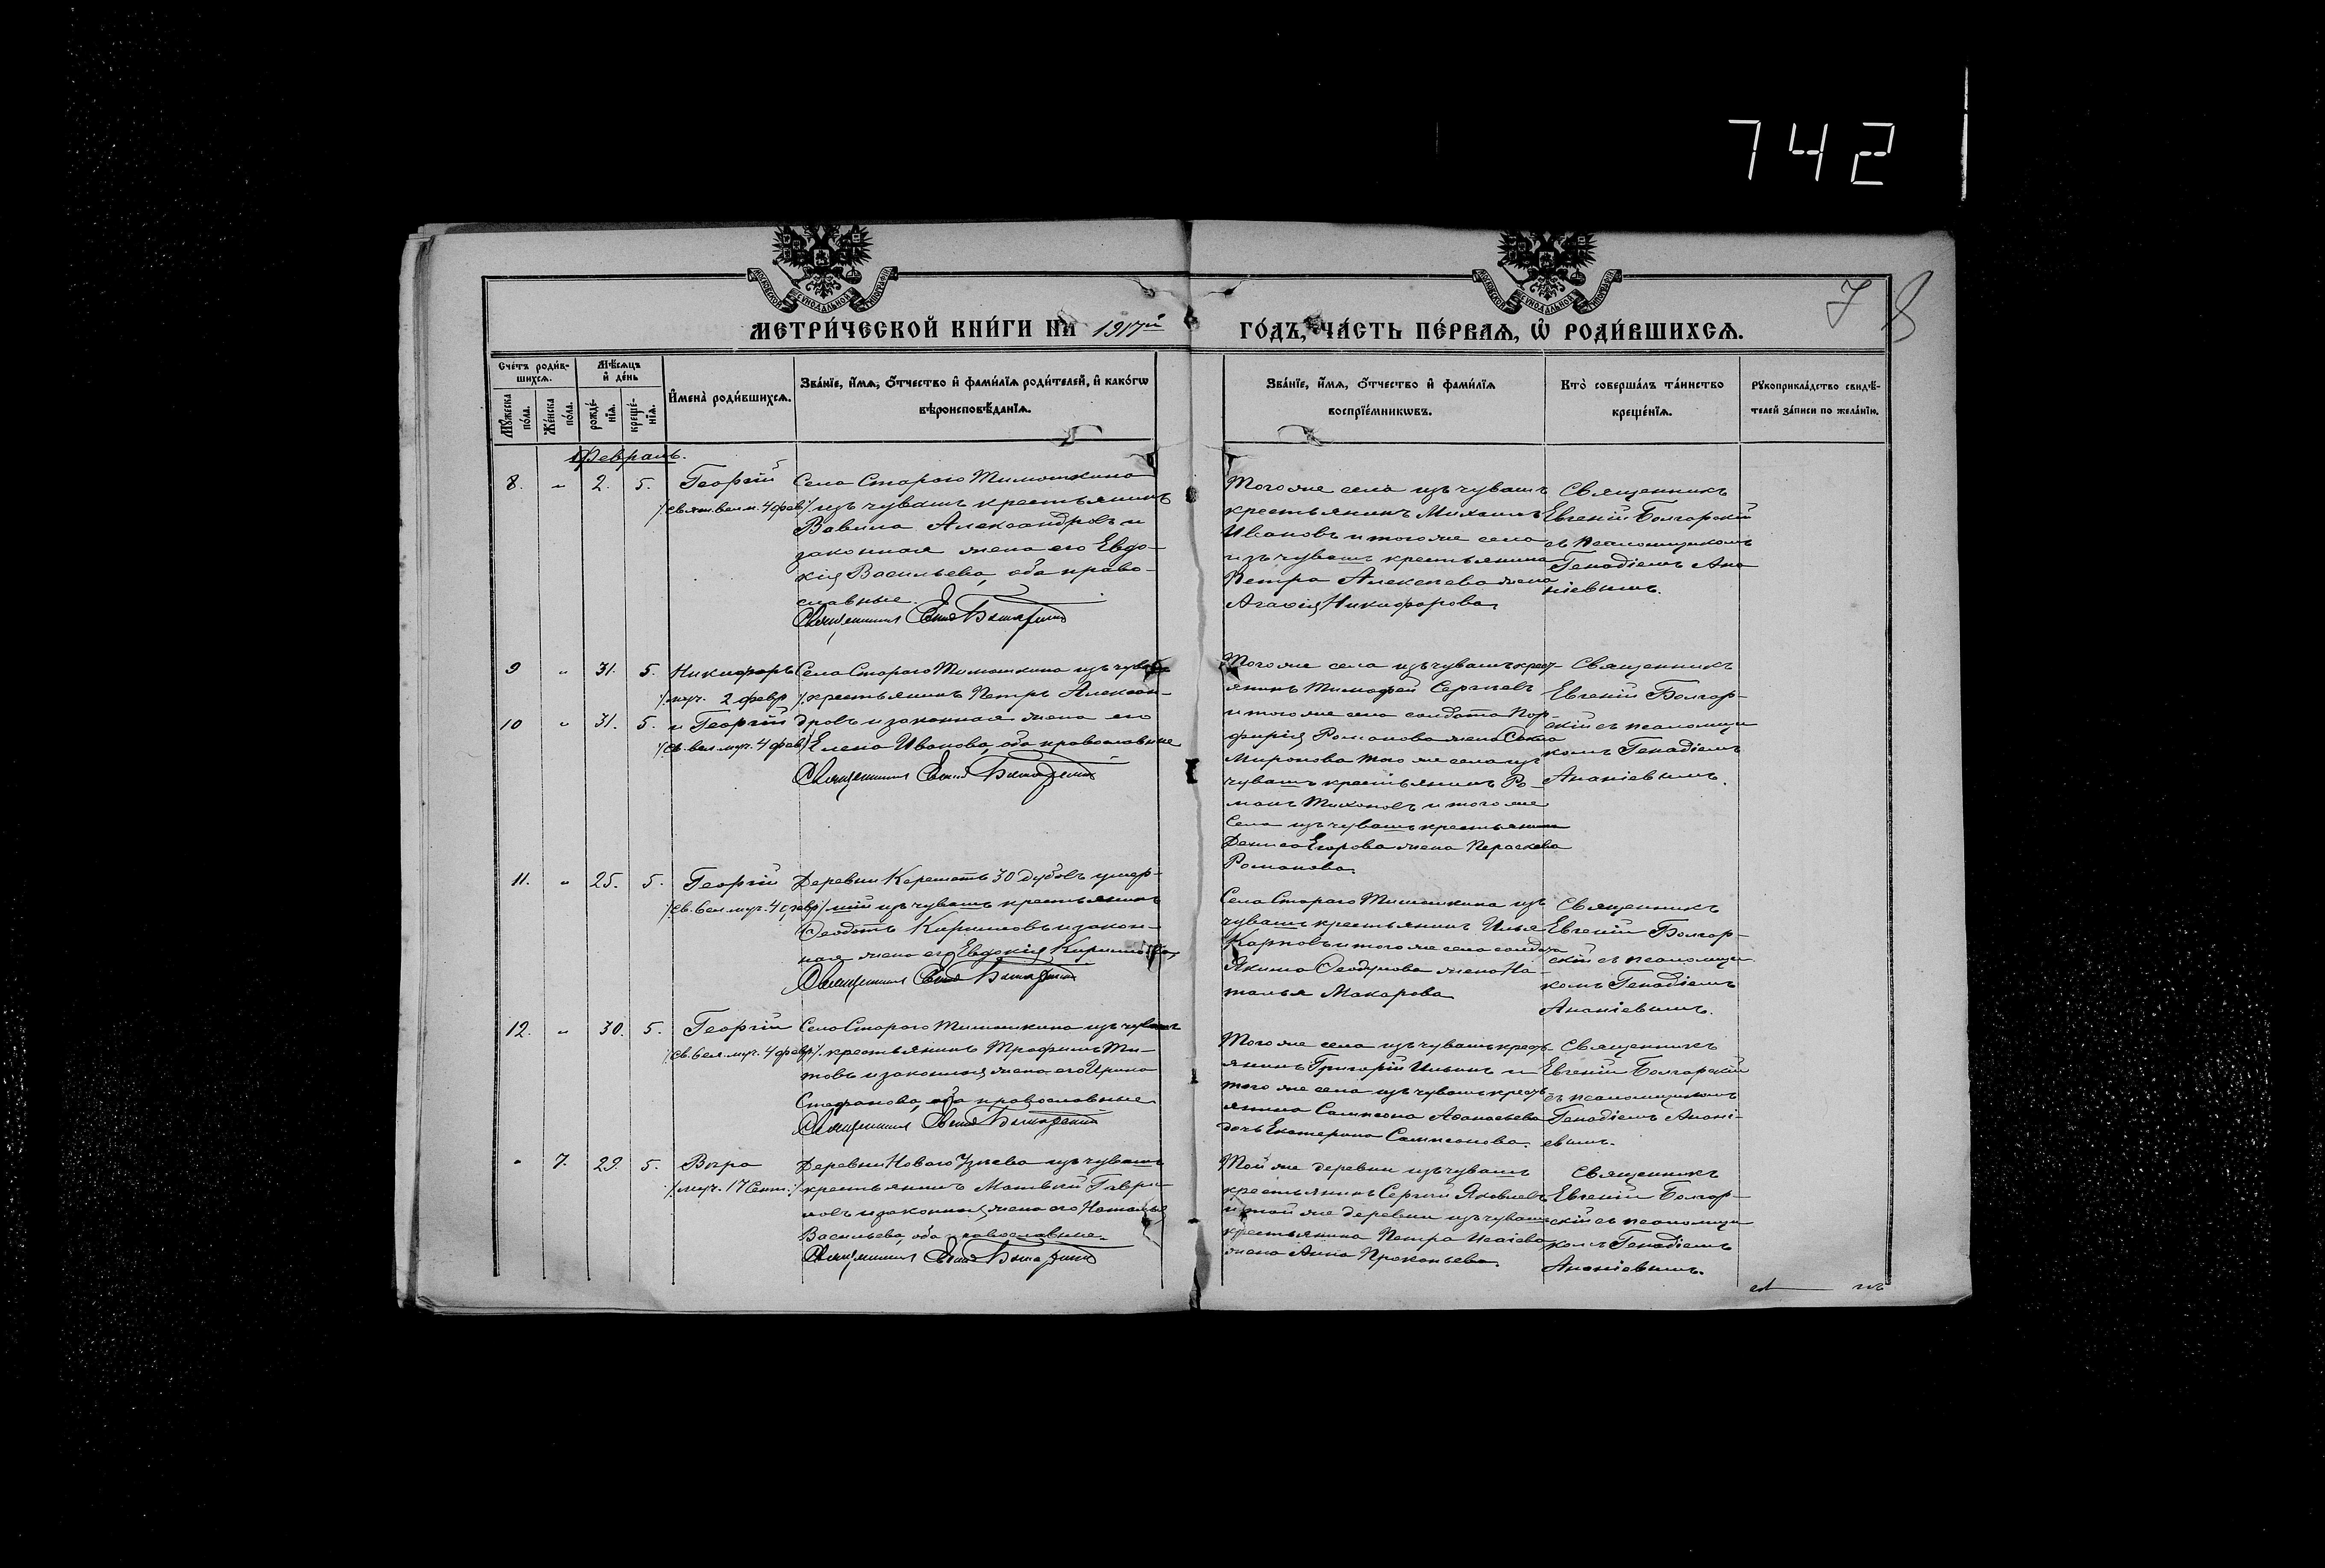 742
7 8
МОСКОВСКОЙ СѴНОДАЛЬНОЙ ТИПОГРАФІИ
МОСКОВСКОЙ СѴНОДАЛЬНОЙ ТИПОГРАФІИ
МЕТРИ́ЧЕСКОЙ КНИ́ГИ НА 1917й
ГО́ДЪ, ЧА́СТЬ ПЕ́РВАѦ, Ѡ҆ РОДИ́ВШИХСѦ.
Сче́тъ роди́в-
шихсѧ.
Мѣ́сѧцъ
и҆ де́нь
Мꙋ́жеска по́ла.
Же́нска по́ла.
рожде́-
нїѧ.
креще́-
нїѧ.
И҆мена̀ роди́вшихсѧ.
Зва́нїе, и҆́мѧ, ѻ҆́тчество и҆ фами́лїѧ роди́телей, и҆ како́гѡ
вѣроисповѣ́данїѧ.
Зва́нїе, и҆́мѧ, ѻ҆́тчество и҆ фами́лїѧ
воспрїе́мникѡвъ.
Кто̀ соверша́лъ та́инство
креще́нїѧ.
Рꙋкоприкла́дство свидѣ́-
телей за́писи по жела́нїю.
Февраль.
8. „ 2. 5. Георгій
/свят. вел. м. 4 фев/
Села Стараго Тимошкина
изъ чувашъ крестьянинъ
Вавила Александровъ и
законная жена его Евдо-
кія Васильева, оба право-
славные.
Священникъ Евгеній Болгарскій
Того же села изъ чувашъ
крестьянинъ Михаилъ
Ивановъ и того же села
изъ чувашъ крестьянина
Петра Алексеева жена
Агафія Никифорова.
Священникъ
Евгеній Болгарскій
съ псаломщикомъ
Генадіемъ Ана
ніевымъ.
9 „ 31. 5. Никифоръ
/муч. 2 февр/
10 „ 31. 5. и Георгій
/св. вел. муч. 4 фев/
Села Стараго Тимошкина изъ чувашъ
крестьянинъ Петръ Алексан-
дровъ и законная жена его
Елена Иванова, оба православные
Священникъ Евгеній Болгарскій
Того же села изъ чувашъ крест-
янинъ Тимофей Сергеевъ
и того же села солдата Пор-
фирія Романова жена
Миронова того же села изъ
чувашъ крестьянинъ Ро-
манъ Тихоновъ и того же
села изъ чувашъ крестьянина
Дениса Егорова жена Пераскева
Романова.
Священникъ
Евгеній Болгар-
скій съ псаломщи
комъ Генадіемъ
Ананіевымъ.
11. „ 25. 5. Георгій
/св. вел. муч. 4 февр/
Деревни Кармать 30 дубовъ умер-
шій изъ чувашъ крестьянинъ
Ѳеодотъ Кириловъ и закон-
ная жена его Евдокія Кирилова
Священникъ Евгеній Болгарскій
Села Стараго Тимошкина изъ
чувашъ крестьянинъ Илья
Карповъ и того же села солдата
Якима Ѳеодулова жена На-
талья Макарова
Священникъ
Евгеній Болгар-
скій съ псаломщи
комъ Генадіемъ
Ананіевымъ.
12. „ 30. 5. Георгій
/св. вел. муч. 4 февр/
Села Стараго Тимошкина изъ чувашъ
крестьянинъ Трофимъ Ти-
товъ и законная жена его Ирина
Стефанова, оба православные
Священникъ Евгеній Болгарскій
Того же села изъ чувашъ крест-
янинъ Григорій Ильинъ и
того же села изъ чувашъ крест-
янина Сампсона Аѳанасьева
дочь Екатерина Сампсонова.
Священникъ
Евгеній Болгарскій
съ псаломщикомъ
Генадіемъ Анані-
евымъ.
„ 7. 29. 5. Вѣра
/муч. 17 Сент./
Деревни Новаго Узеева изъ чувашъ
крестьянинъ Матвей Гаври-
ловъ и законная жена его Наталья
Васильева, оба православные.
Священникъ Евгеній Болгарскій
Той же деревни изъ чувашъ
крестьянинъ Сергей Яковлевъ
и той же деревни изъ чувашъ
крестьянина Петра Исаіева
жена Анна Прокопьева.
Священникъ
Евгеній Болгар-
скій съ псаломщи
комъ Генадіемъ
Ананіевымъ.